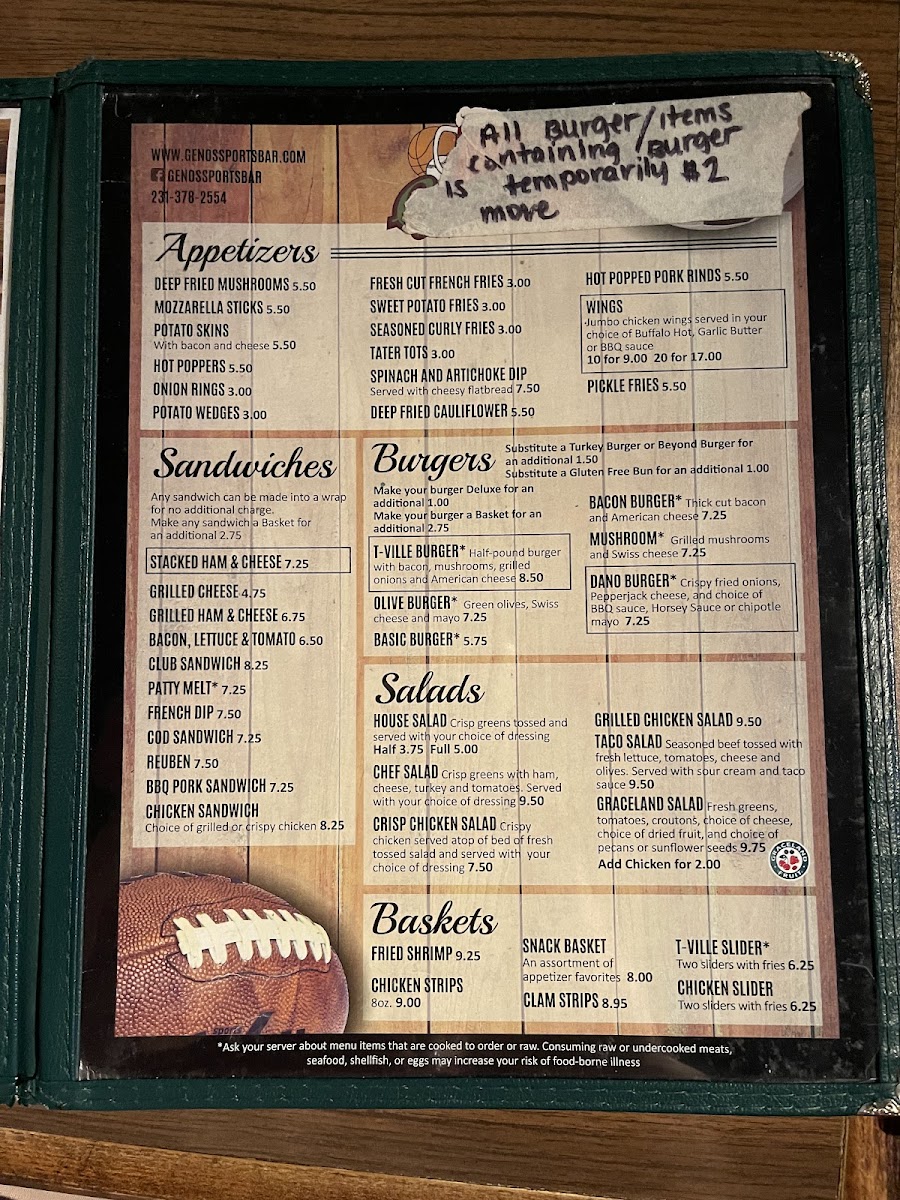 WWW.GENOSSPORTSBAR.COM
GENOSSPORTSBAR
231-378-2554
All Burger/items
containing Burger
is temporarily $2
more
Appetizers
DEEP FRIED MUSHROOMS 5.50
MOZZARELLA STICKS 5.50
POTATO SKINS
With bacon and cheese 5.50
HOT POPPERS 5.50
ONION RINGS 3.00
POTATO WEDGES 3.00
FRESH CUT FRENCH FRIES 3.00
SWEET POTATO FRIES 3.00
SEASONED CURLY FRIES 3.00
TATER TOTS 3.00
SPINACH AND ARTICHOKE DIP
Served with cheesy flatbread 7.50
DEEP FRIED CAULIFLOWER 5.50
HOT POPPED PORK RINDS 5.50
WINGS
Jumbo chicken wings served in your
choice of Buffalo Hot, Garlic Butter
or BBQ sauce
10 for 9.00 20 for 17.00
PICKLE FRIES 5.50
Sandwiches
Any sandwich can be made into a wrap
for no additional charge.
Make any sandwich a Basket for
an additional 2.75
STACKED HAM & CHEESE 7.25
GRILLED CHEESE 4.75
GRILLED HAM & CHEESE 6.75
BACON, LETTUCE & TOMATO 6.50
CLUB SANDWICH 8.25
PATTY MELT* 7.25
FRENCH DIP 7.50
COD SANDWICH 7.25
REUBEN 7.50
BBQ PORK SANDWICH 7.25
CHICKEN SANDWICH
Choice of grilled or crispy chicken 8.25
Burgers
Substitute a Turkey Burger or Beyond Burger for
an additional 1.50
Substitute a Gluten Free Bun for an additional 1.00
Make your burger Deluxe for an
additional 1.00
Make your burger a Basket for an
additional 2.75
T-VILLE BURGER* Half-pound burger
with bacon, mushrooms, grilled
onions and American cheese 8.50
OLIVE BURGER* Green olives, Swiss
cheese and mayo 7.25
BASIC BURGER* 5.75
BACON BURGER* Thick cut bacon
and American cheese 7.25
MUSHROOM* Grilled mushrooms
and Swiss cheese 7.25
DANO BURGER* Crispy fried onions,
Pepperjack cheese, and choice of
BBQ sauce, Horsey Sauce or chipotle
mayo 7.25
Salads
HOUSE SALAD Crisp greens tossed and
served with your choice of dressing
Half 3.75 Full 5.00
CHEF SALAD Crisp greens with ham,
cheese, turkey and tomatoes. Served
with your choice of dressing 9.50
CRISP CHICKEN SALAD Crispy
chicken served atop of bed of fresh
tossed salad and served with your
choice of dressing 7.50
GRILLED CHICKEN SALAD 9.50
TACO SALAD Seasoned beef tossed with
fresh lettuce, tomatoes, cheese and
olives. Served with sour cream and taco
sauce 9.50
GRACELAND SALAD Fresh greens,
tomatoes, croutons, choice of cheese,
choice of dried fruit, and choice of
pecans or sunflower seeds 9.75
Add Chicken for 2.00
GRACELAND
FRUIT
Baskets
FRIED SHRIMP 9.25
CHICKEN STRIPS
8oz. 9.00
SNACK BASKET
An assortment of
appetizer favorites 8.00
CLAM STRIPS 8.95
T-VILLE SLIDER*
Two sliders with fries 6.25
CHICKEN SLIDER
Two sliders with fries 6.25
sports
*Ask your server about menu items that are cooked to order or raw. Consuming raw or undercooked meats,
seafood, shellfish, or eggs may increase your risk of food-borne illness